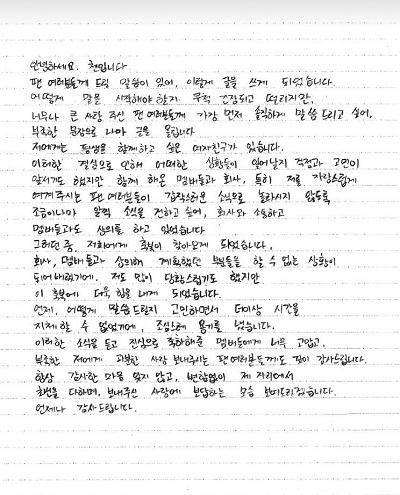 안녕하세요. 첸입니다
팬 여러분들께 드릴 말씀이 있어, 이렇게 글을 쓰게 되었습니다
어떻게 말을 시작해야 할지 무척 긴장되고 떨리지만,
너무나 큰 사랑 주신 팬 여러분들께 가장 먼저 솔직하게 말씀드리고 싶어,
부족한 문장으로나마 글을 올립니다.
저에게는 평생을 함께하고 싶은 여자친구가 있습니다.
이러한 결심으로 인해 어떠한 상황들이 일어날지 걱정과 고민이
앞서기도 했지만 함께 해온 멤버들과 회사, 특히 저를 자랑스럽게
여겨주시는 팬 여러분들이 갑작스러운 소식으로 놀라시지 않도록
조금이나마 일찍 소식을 전하고 싶어, 회사와 소통하고
멤버들과도 상의를 하고 있었습니다
그러던 중, 저희에게 축복이 찾아오게 되었습니다,
회사, 멤버들과 상의해 계획했던 부분들을 할 수 없는 상황이
되어버렸기에, 저도 많이 당황스럽기도 했지만
이 축복에 더욱 힘을 내게 되었습니다.
언제, 어떻게 말씀드릴지 고민하면서 더이상 시간을
지체할 수 없었기에, 조심스레 용기를 냈습니다.
이러한 소식을 듣고 진심으로 축하해준 멤버들에게 너무 고맙고,
부족한 저에게 과분한 사랑 보내주시는 팬 여러분들께도 깊이 감사드립니다.
항상 감사한 마음 잊지 않고, 변함없이 제 자리에서
최선을 다하며, 보내주신 사랑에 보답하는 모습 보여드리겠습니다.
언제나 감사드립니다.